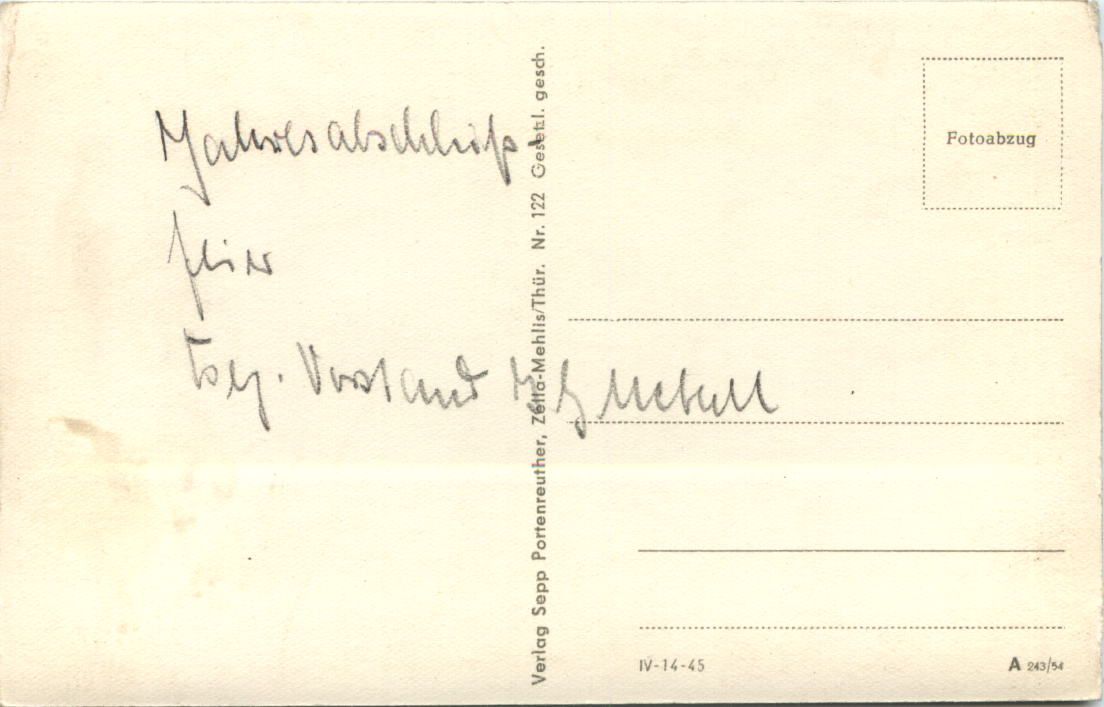 Jahresabschluß-
feier
Vorstand IG Metall
Verlag Sepp Portenreuther, Zella-Mehlis/Thür. Nr. 122 Gesetzl. gesch.
Fotoabzug
IV-14-45
A 243/54